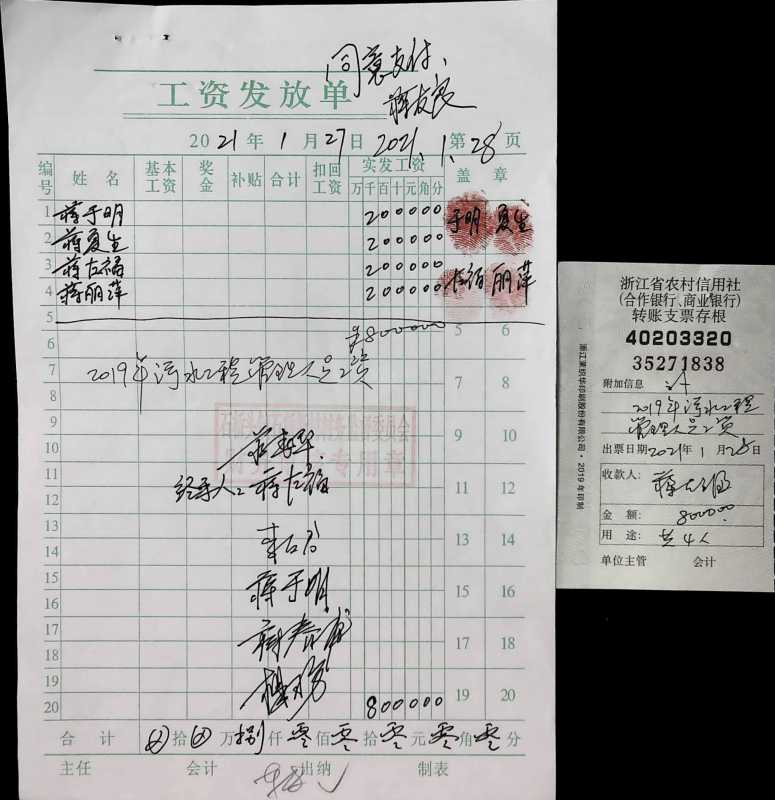 同意支付、
蒋友良
工资发放单
2021年1月27日 2021.1.28 第 页
编号 姓名 基本工资 奖金 补贴 合计 扣回工资 实发工资 万千百十元角分 盖章
1 蒋于明 200000 于明
2 蒋夏生 200000 夏生
3 蒋左福 200000 左福
4 蒋丽萍 200000 丽萍
5
6 ¥800000 5 6
7 2019年污水工程管理人员工资 7 8
8
9 9 10
10
11 经手人: 蒋左福 11 12
12
13 13 14
14
15 蒋于明 15 16
16
17 17 18
18
19 19 20
20 800000
合计 ⊗拾⊗万捌仟零佰零拾零元零角零分
主任 会计 出纳 制表
浙江省农村信用社
(合作银行、商业银行)
转账支票存根
40203320
35271838
附加信息
2019年污水工程
管理人员工资
出票日期2021年1月28日
收款人: 蒋左福
金额: 8000.00
用途: 共4人
单位主管 会计
浙江莱织华印刷股份有限公司·2019年印制